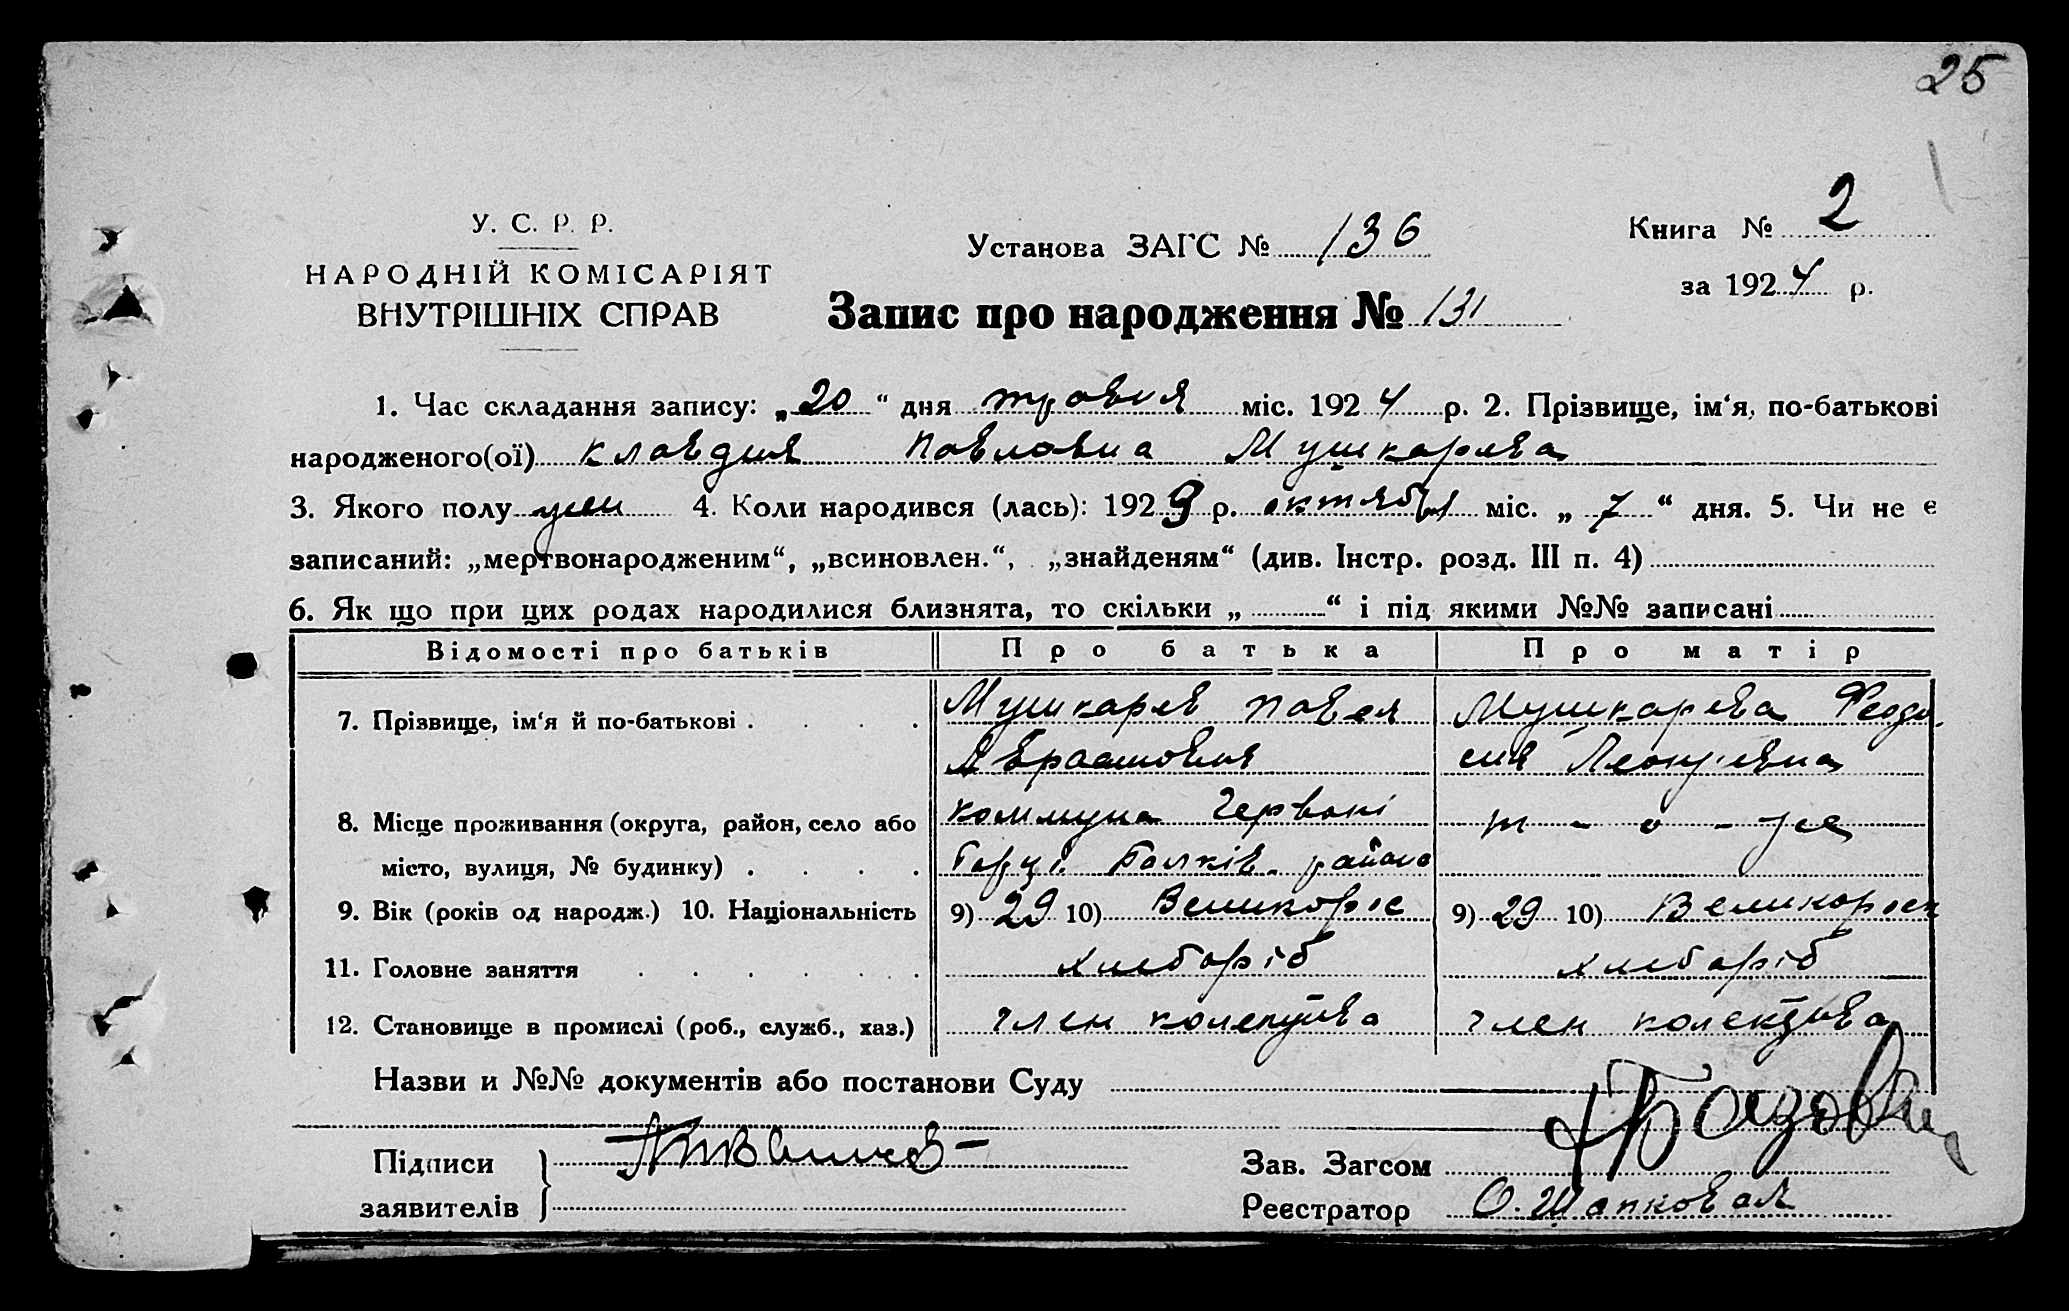 25
У. С. Р. Р.
НАРОДНІЙ КОМІСАРІЯТ
ВНУТРІШНІХ СПРАВ
Установа ЗАГС № 136
Запис про народження № 131
Книга № 2
за 1924 р.
1. Час складання запису: „20“ дня травня міс. 1924 р. 2. Прізвище, ім‘я, по-батькові
народженого(ої) Клавдия Павловна Мушкарева
3. Якого полу жен 4. Коли народився (лась): 1923 р. октября міс. „7“ дня. 5. Чи не є
записаний: „мертвонародженим“, „всиновлен.“, „знайденям“ (див. Інстр. розд. III п. 4)
6. Як що при цих родах народилися близнята, то скільки „ “ і під якими №№ записані
Відомості про батьків Про батька Про матір
7. Прізвище, ім‘я й по-батькові . . . . Мушкарев Павел Мушкарева Феодо-
сия
8. Місце проживання (округа, район, село або Коммуна Червоні т-о-же
місто, вулиця, № будинку) . . . . района
9. Вік (років од народж.) 10. Національність 9) 29 10) Великорос 9) 29 10) Великорос
11. Головне заняття . . . . . . хлеборіб хлеборіб
12. Становище в промислі (роб., служб., хаз.) член колектива член колектива
Назви и №№ документів або постанови Суду
Підписи
заявителів
Зав. Загсом
Реєстратор О. Шаповал